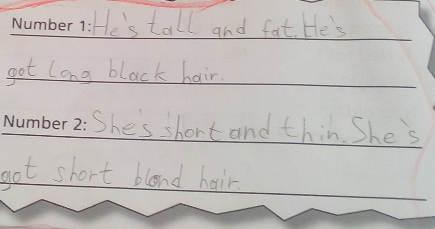 Number 1: He's tall and fat. He's
got long black hair.
Number 2: She's short and thin. She's
got short blond hair.